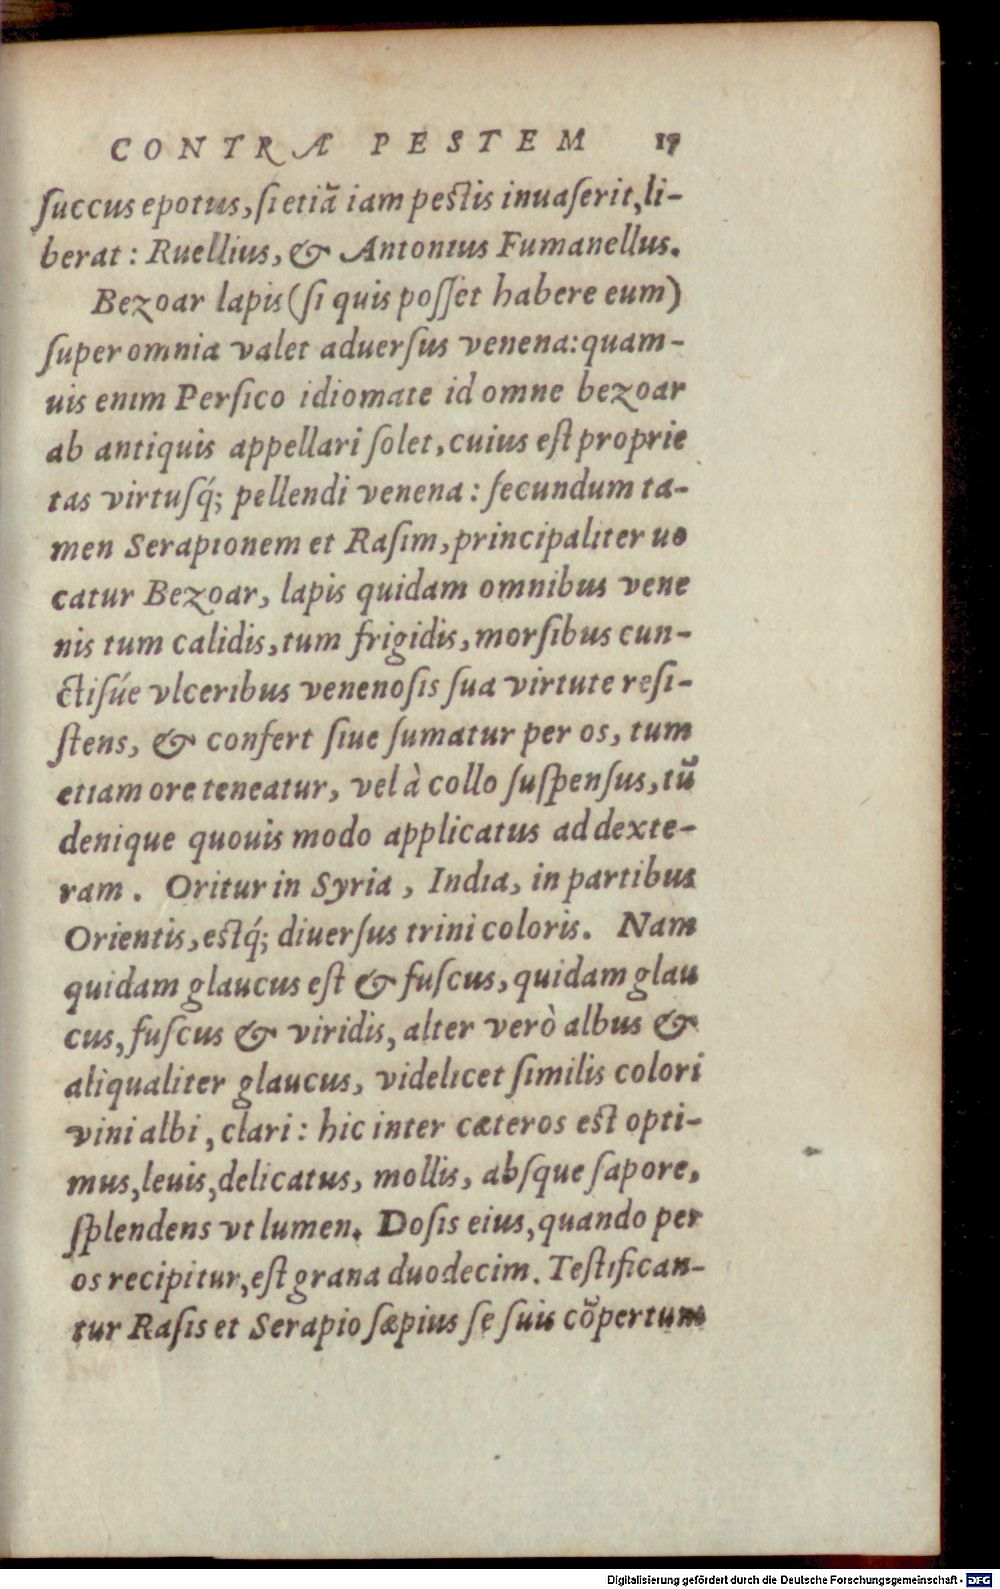 CONTRA PESTEM 17
succus epotus, si etiã iam pestis inuaserit, li-
berat: Ruellius, & Antonius Fumanellus.
Bezoar lapis (si quis posset habere eum)
super omnia valet aduersus venena: quam-
uis enim Persico idiomate id omne bezoar
ab antiquis appellari solet, cuius est proprie
tas virtusq́; pellendi venena: secundum ta-
men Serapionem et Rasim, principaliter uo
catur Bezoar, lapis quidam omnibus vene
nis tum calidis, tum frigidis, morsibus cun-
ctisúe vlceribus venenosis sua virtute resi-
stens, & confert siue sumatur per os, tum
etiam ore teneatur, vel à collo suspensus, tũ
denique quouis modo applicatus ad dexte-
ram. Oritur in Syria, India, in partibus
Orientis, estq́; diuersus trini coloris. Nam
quidam glaucus est & fuscus, quidam glau
cus, fuscus & viridis, alter verò albus &
aliqualiter glaucus, videlicet similis colori
vini albi, clari: hic inter cæteros est opti-
mus, leuis, delicatus, mollis, absque sapore,
splendens vt lumen. Dosis eius, quando per
os recipitur, est grana duodecim. Testifican-
tur Rasis et Serapio sæpius se suis cõpertum
Digitalisierung gefördert durch die Deutsche Forschungsgemeinschaft - DFG